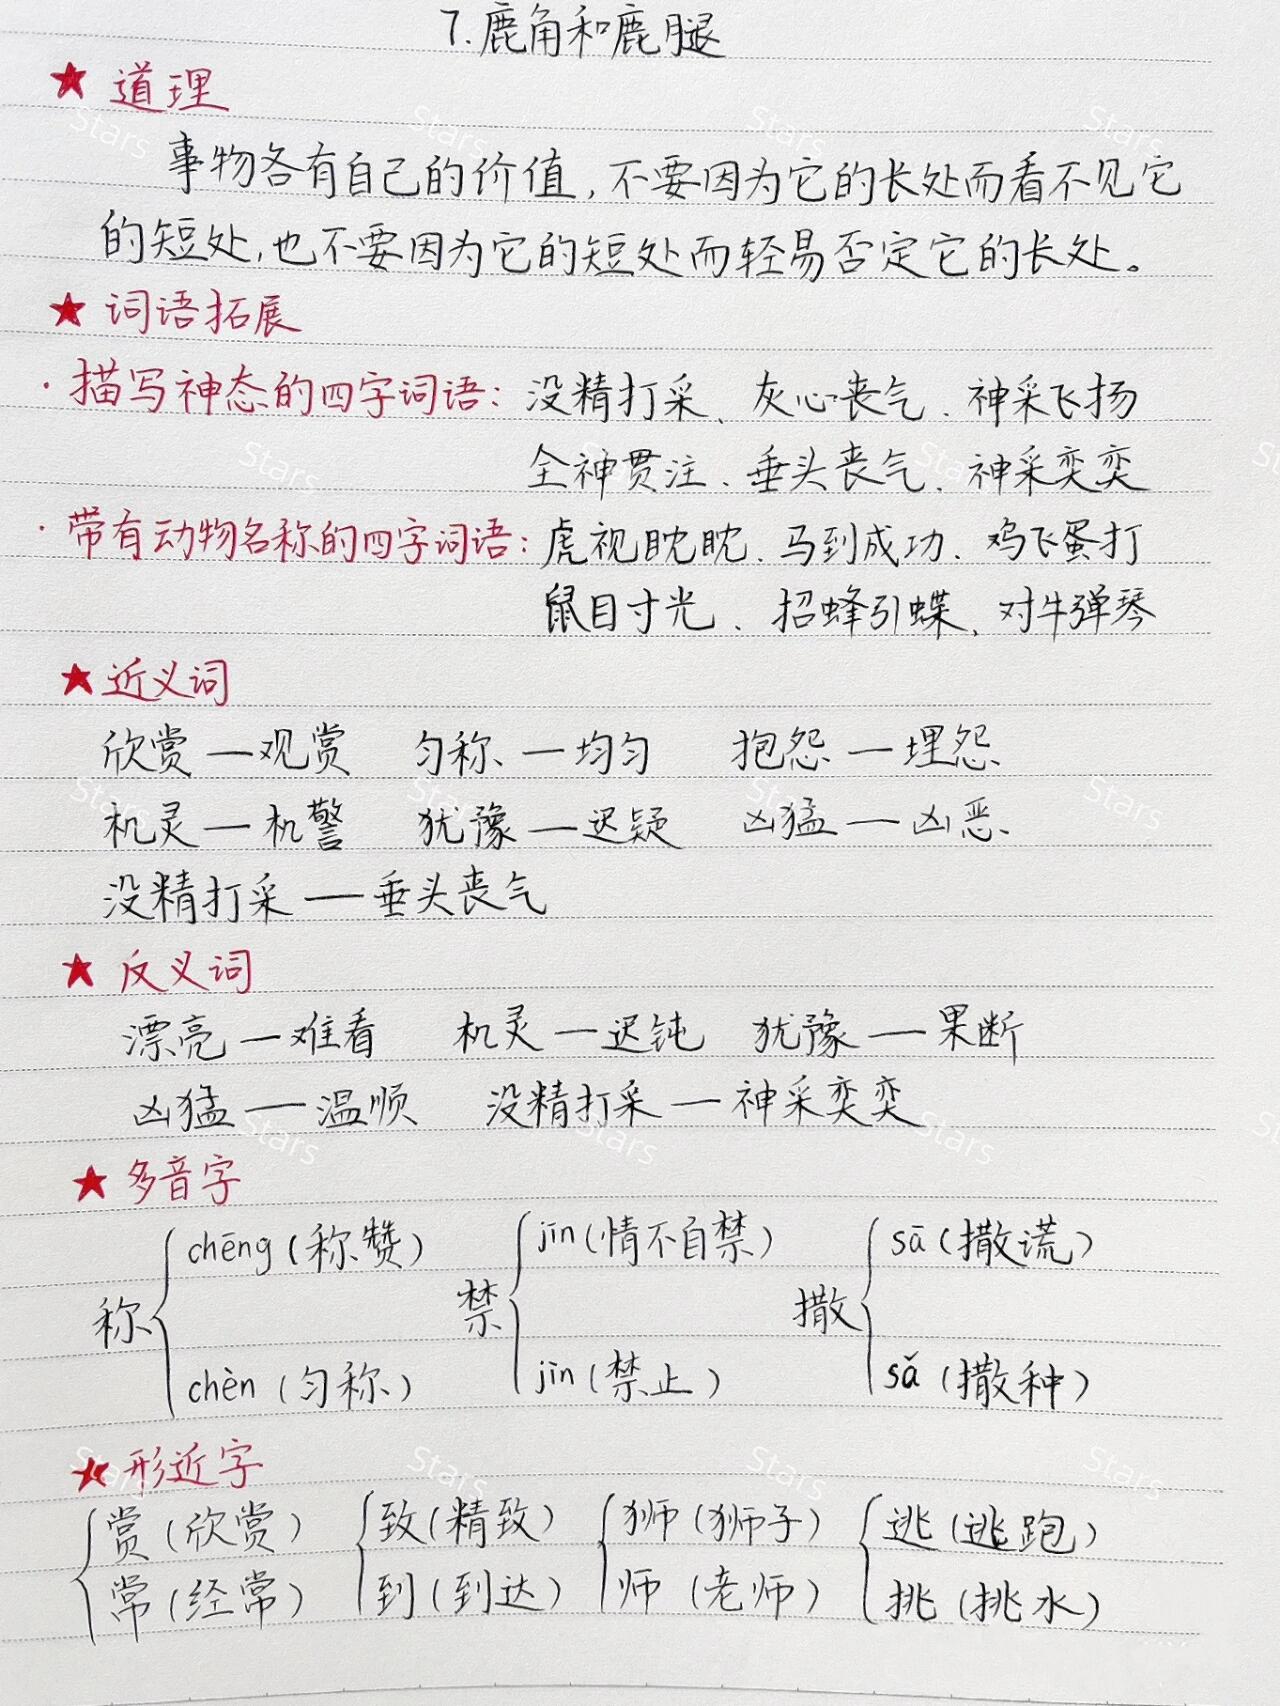 7.鹿角和鹿腿
★ 道理
事物各有自己的价值,不要因为它的长处而看不见它
的短处,也不要因为它的短处而轻易否定它的长处。
★ 词语拓展
·描写神态的四字词语:没精打采、灰心丧气、神采飞扬
全神贯注、垂头丧气、神采奕奕
·带有动物名称的四字词语:虎视眈眈、马到成功、鸡飞蛋打
鼠目寸光、招蜂引蝶、对牛弹琴
★近义词
欣赏—观赏 匀称—均匀 抱怨—埋怨
机灵—机警 犹豫—迟疑 凶猛—凶恶
没精打采—垂头丧气
★ 反义词
漂亮—难看 机灵—迟钝 犹豫—果断
凶猛—温顺 没精打采—神采奕奕
★ 多音字
chēng(称赞) jīn(情不自禁) sā(撒谎)
称 禁 撒
chèn(匀称) jīn(禁止) sǎ(撒种)
★形近字
赏(欣赏) 致(精致) 狮(狮子) 逃(逃跑)
常(经常) 到(到达) 师(老师) 挑(挑水)
Stars